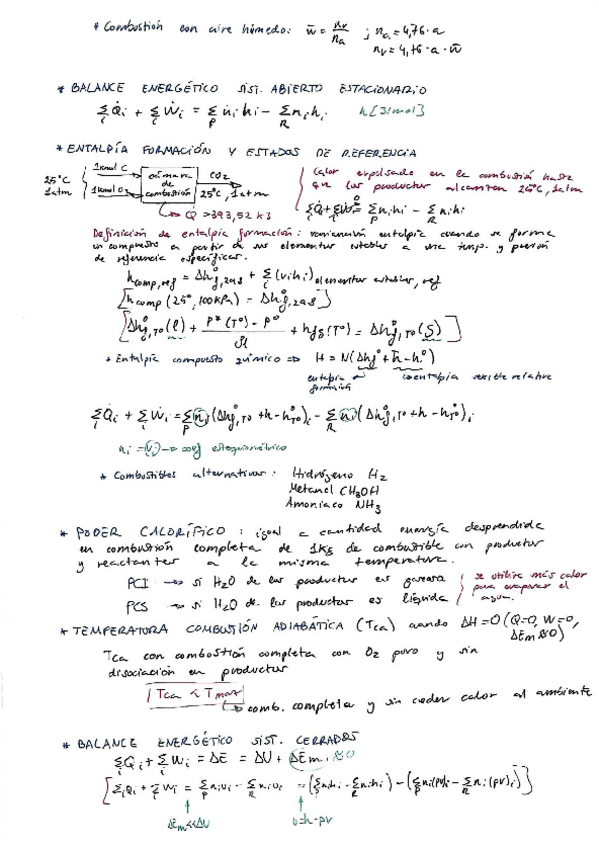 * Combustión con aire húmedo: w̄ = nv/na ; na = 4,76·a
nv = 4,76·a·w̄
* BALANCE ENERGÉTICO SIST. ABIERTO ESTACIONARIO
Σi Q̇i + Σi Ẇi = ΣP ṅi hi − ΣR ṅi hi h[J/mol]
* ENTALPÍA FORMACIÓN Y ESTADOS DE REFERENCIA
25°C 1atm
1kmol C
1kmol O2
cámara de combustión
CO2
25°C, 1atm
Q̇ = 393,52 kJ
Calor expulsado en la combustión hasta
que los productos alcanzan 25°C, 1atm
ΣQ̇i + ΣẆi = ΣP ni hi − ΣR ni hi
Definición de entalpía formación: variación entalpía cuando se forma
un compuesto a partir de sus elementos estables a una temp. y presión
de referencia específicas.
hcomp,ref = Δh°f,298 + Σi (νi hi) elementos estables, ref
[hcomp (25°, 100kPa) = Δh°f,298]
* Entalpía compuesto químico ⇒ H = N(Δh°f + h̄ − h°)
entalpía formación
entalpía sensible relativa
Σi Q̇i + Σi Ẇi = ΣP ni (Δh°f,T° + h − h°T°)i − ΣR ni (Δh°f,T° + h − h°T°)i
ni = νi → coef estequiométrico
* Combustibles alternativos: Hidrógeno H2
Metanol CH3OH
Amoniaco NH3
* PODER CALORÍFICO: igual a cantidad energía desprendida
en combustión completa de 1kg de combustible con productos
y reactantes a la misma temperatura.
PCI → si H2O de los productos es gaseosa
PCS → si H2O de los productos es líquida
se utiliza más calor
para evaporar el
agua.
* TEMPERATURA COMBUSTIÓN ADIABÁTICA (Tca) cuando ΔH=0 (Q=0, W=0,
ΔEm≈0)
Tca con combustión completa con O2 puro y sin
disociación en productos
Tca < Tmax
→ comb. completa y sin ceder calor al ambiente
* BALANCE ENERGÉTICO SIST. CERRADOS
Σi Qi + Σi Wi = ΔE = ΔU + ΔEm ≈0
[Σi Qi + Σi Wi = ΣP ni ui − ΣR ni ui = (ΣP ni hi − ΣR ni hi) − (ΣP ni(pv)i − ΣR ni(pv)i)]
ΔEm<<ΔU
u=h-pv